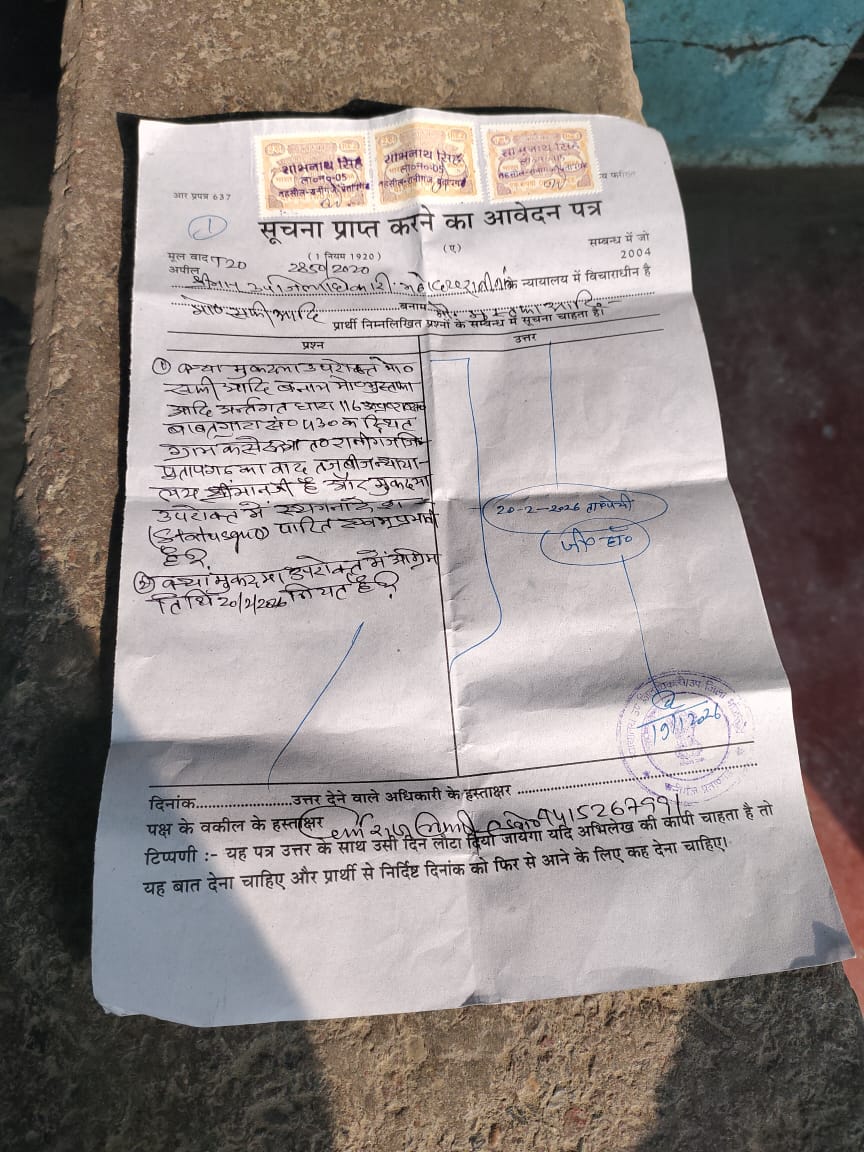 शोभनाथ सिंह
ला०न०-05
तहसील-रानीगंज, प्रतापगढ़
शोभनाथ सिंह
ला०न०-05
तहसील-रानीगंज, प्रतापगढ़
शोभनाथ सिंह
ला०न०-05
तहसील-रानीगंज, प्रतापगढ़
आर प्रपत्र 637
1
सूचना प्राप्त करने का आवेदन पत्र
मूल वाद T20 (1 नियम 1920) (ए) सम्बन्ध में जो
अपील 2850/2020 2004
श्रीमान उपजिलाधिकारी के न्यायालय में विचाराधीन है
मो० सफी आदि बनाम मो० मुस्तफा आदि
प्रार्थी निम्नलिखित प्रश्नों के सम्बन्ध में सूचना चाहता है।
प्रश्न उत्तर
① क्या मुकदमा उपरोक्त मो०
सफी आदि बनाम मो० मुस्तफा
आदि अर्न्तगत धारा 116
बाबत गाटा सं० 430 क स्थित
ग्राम कसेरुआ त० रानीगंज जि०
प्रतापगढ़ का वाद तजबीज न्याया-
लय श्रीमानजी है और मुकदमा
उपरोक्त में स्थगनादेश
(Statusquo) पारित एवम् प्रभावी
है?
② क्या मुकदमा उपरोक्त में अग्रिम
तिथि 20/2/2026 नियत है?
20-2-2026
जी० हाँ०
19/1/2026
दिनांक......................उत्तर देने वाले अधिकारी के हस्ताक्षर
पक्ष के वकील के हस्ताक्षर 9415267991
टिप्पणी :- यह पत्र उत्तर के साथ उसी दिन लौटा दिया जायेगा यदि अभिलेख की कापी चाहता है तो
यह बात देना चाहिए और प्रार्थी से निर्दिष्ट दिनांक को फिर से आने के लिए कह देना चाहिए।